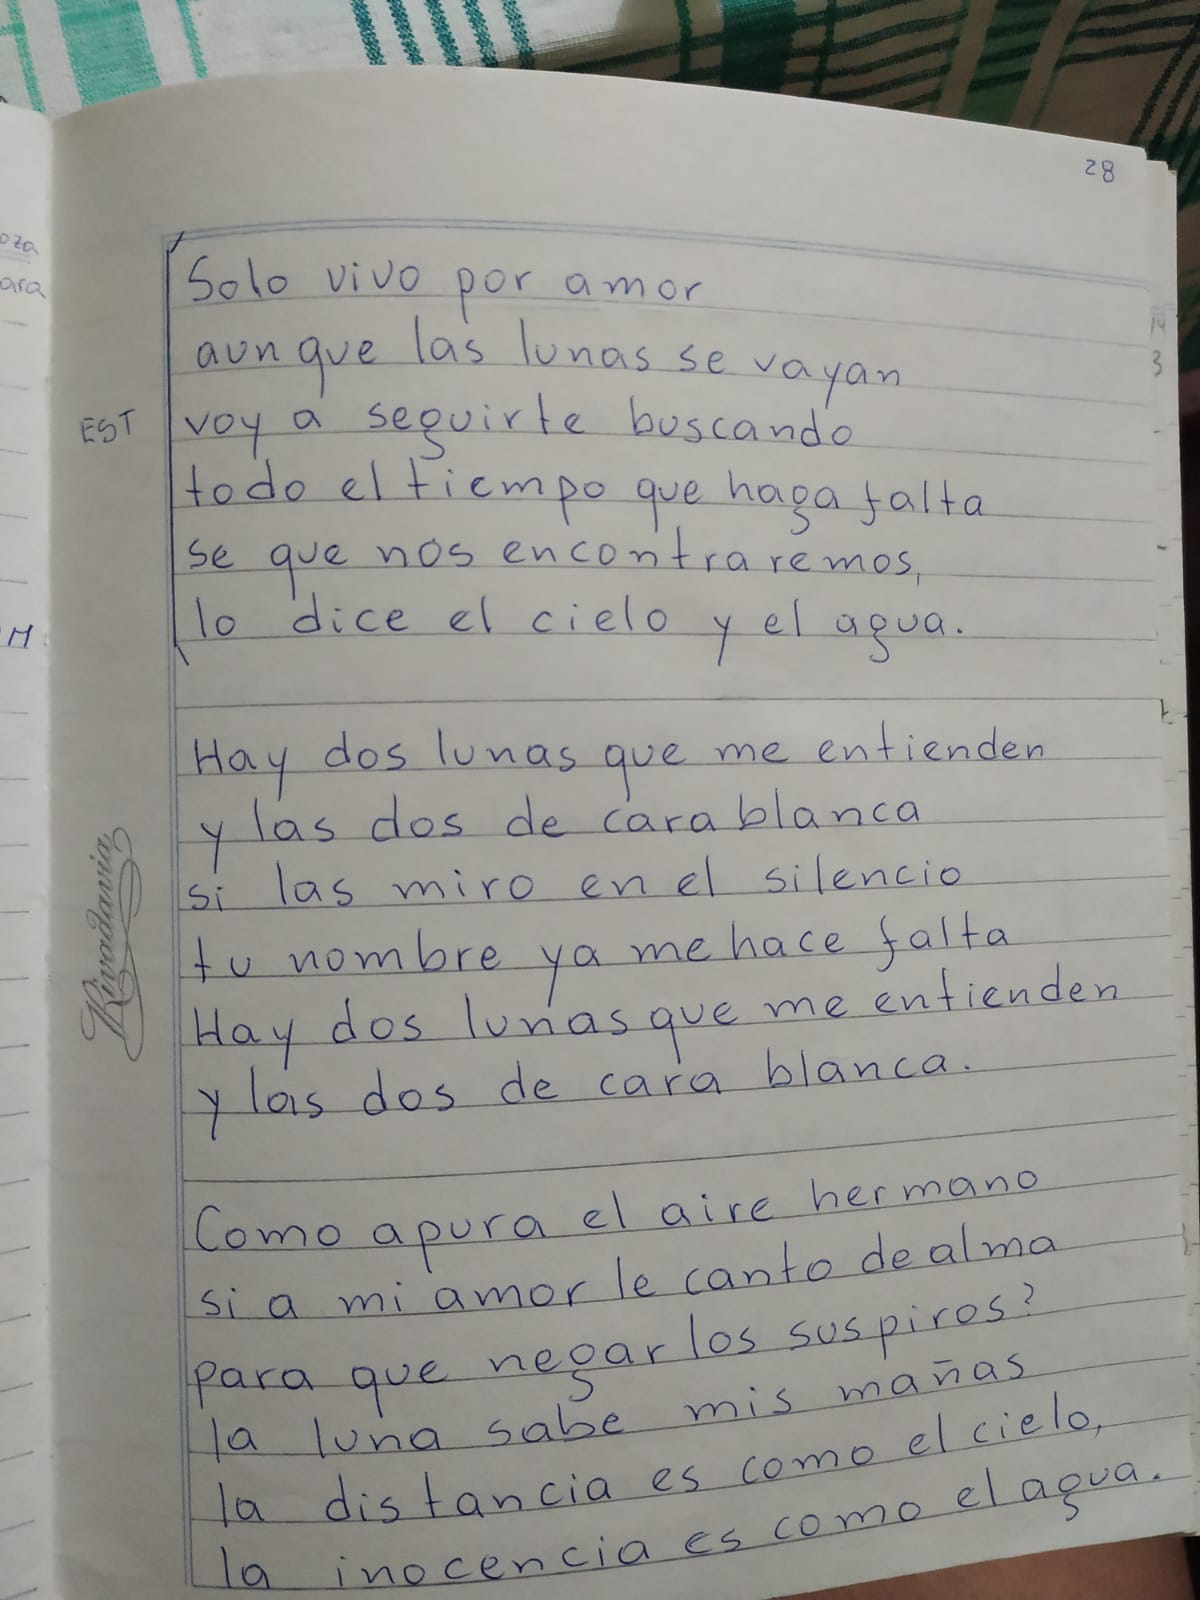 28
oza
ara
14
3
Solo vivo por amor
aunque las lunas se vayan
EST
voy a seguirte buscando
todo el tiempo que haga falta
se que nos encontraremos,
lo dice el cielo y el agua.
Hay dos lunas que me entienden
y las dos de cara blanca
si las miro en el silencio
tu nombre ya me hace falta
Hay dos lunas que me entienden
y las dos de cara blanca.
Rivadavia
Como apura el aire hermano
si a mi amor le canto de alma
para que negar los suspiros?
la luna sabe mis mañas
la distancia es como el cielo,
la inocencia es como el agua.